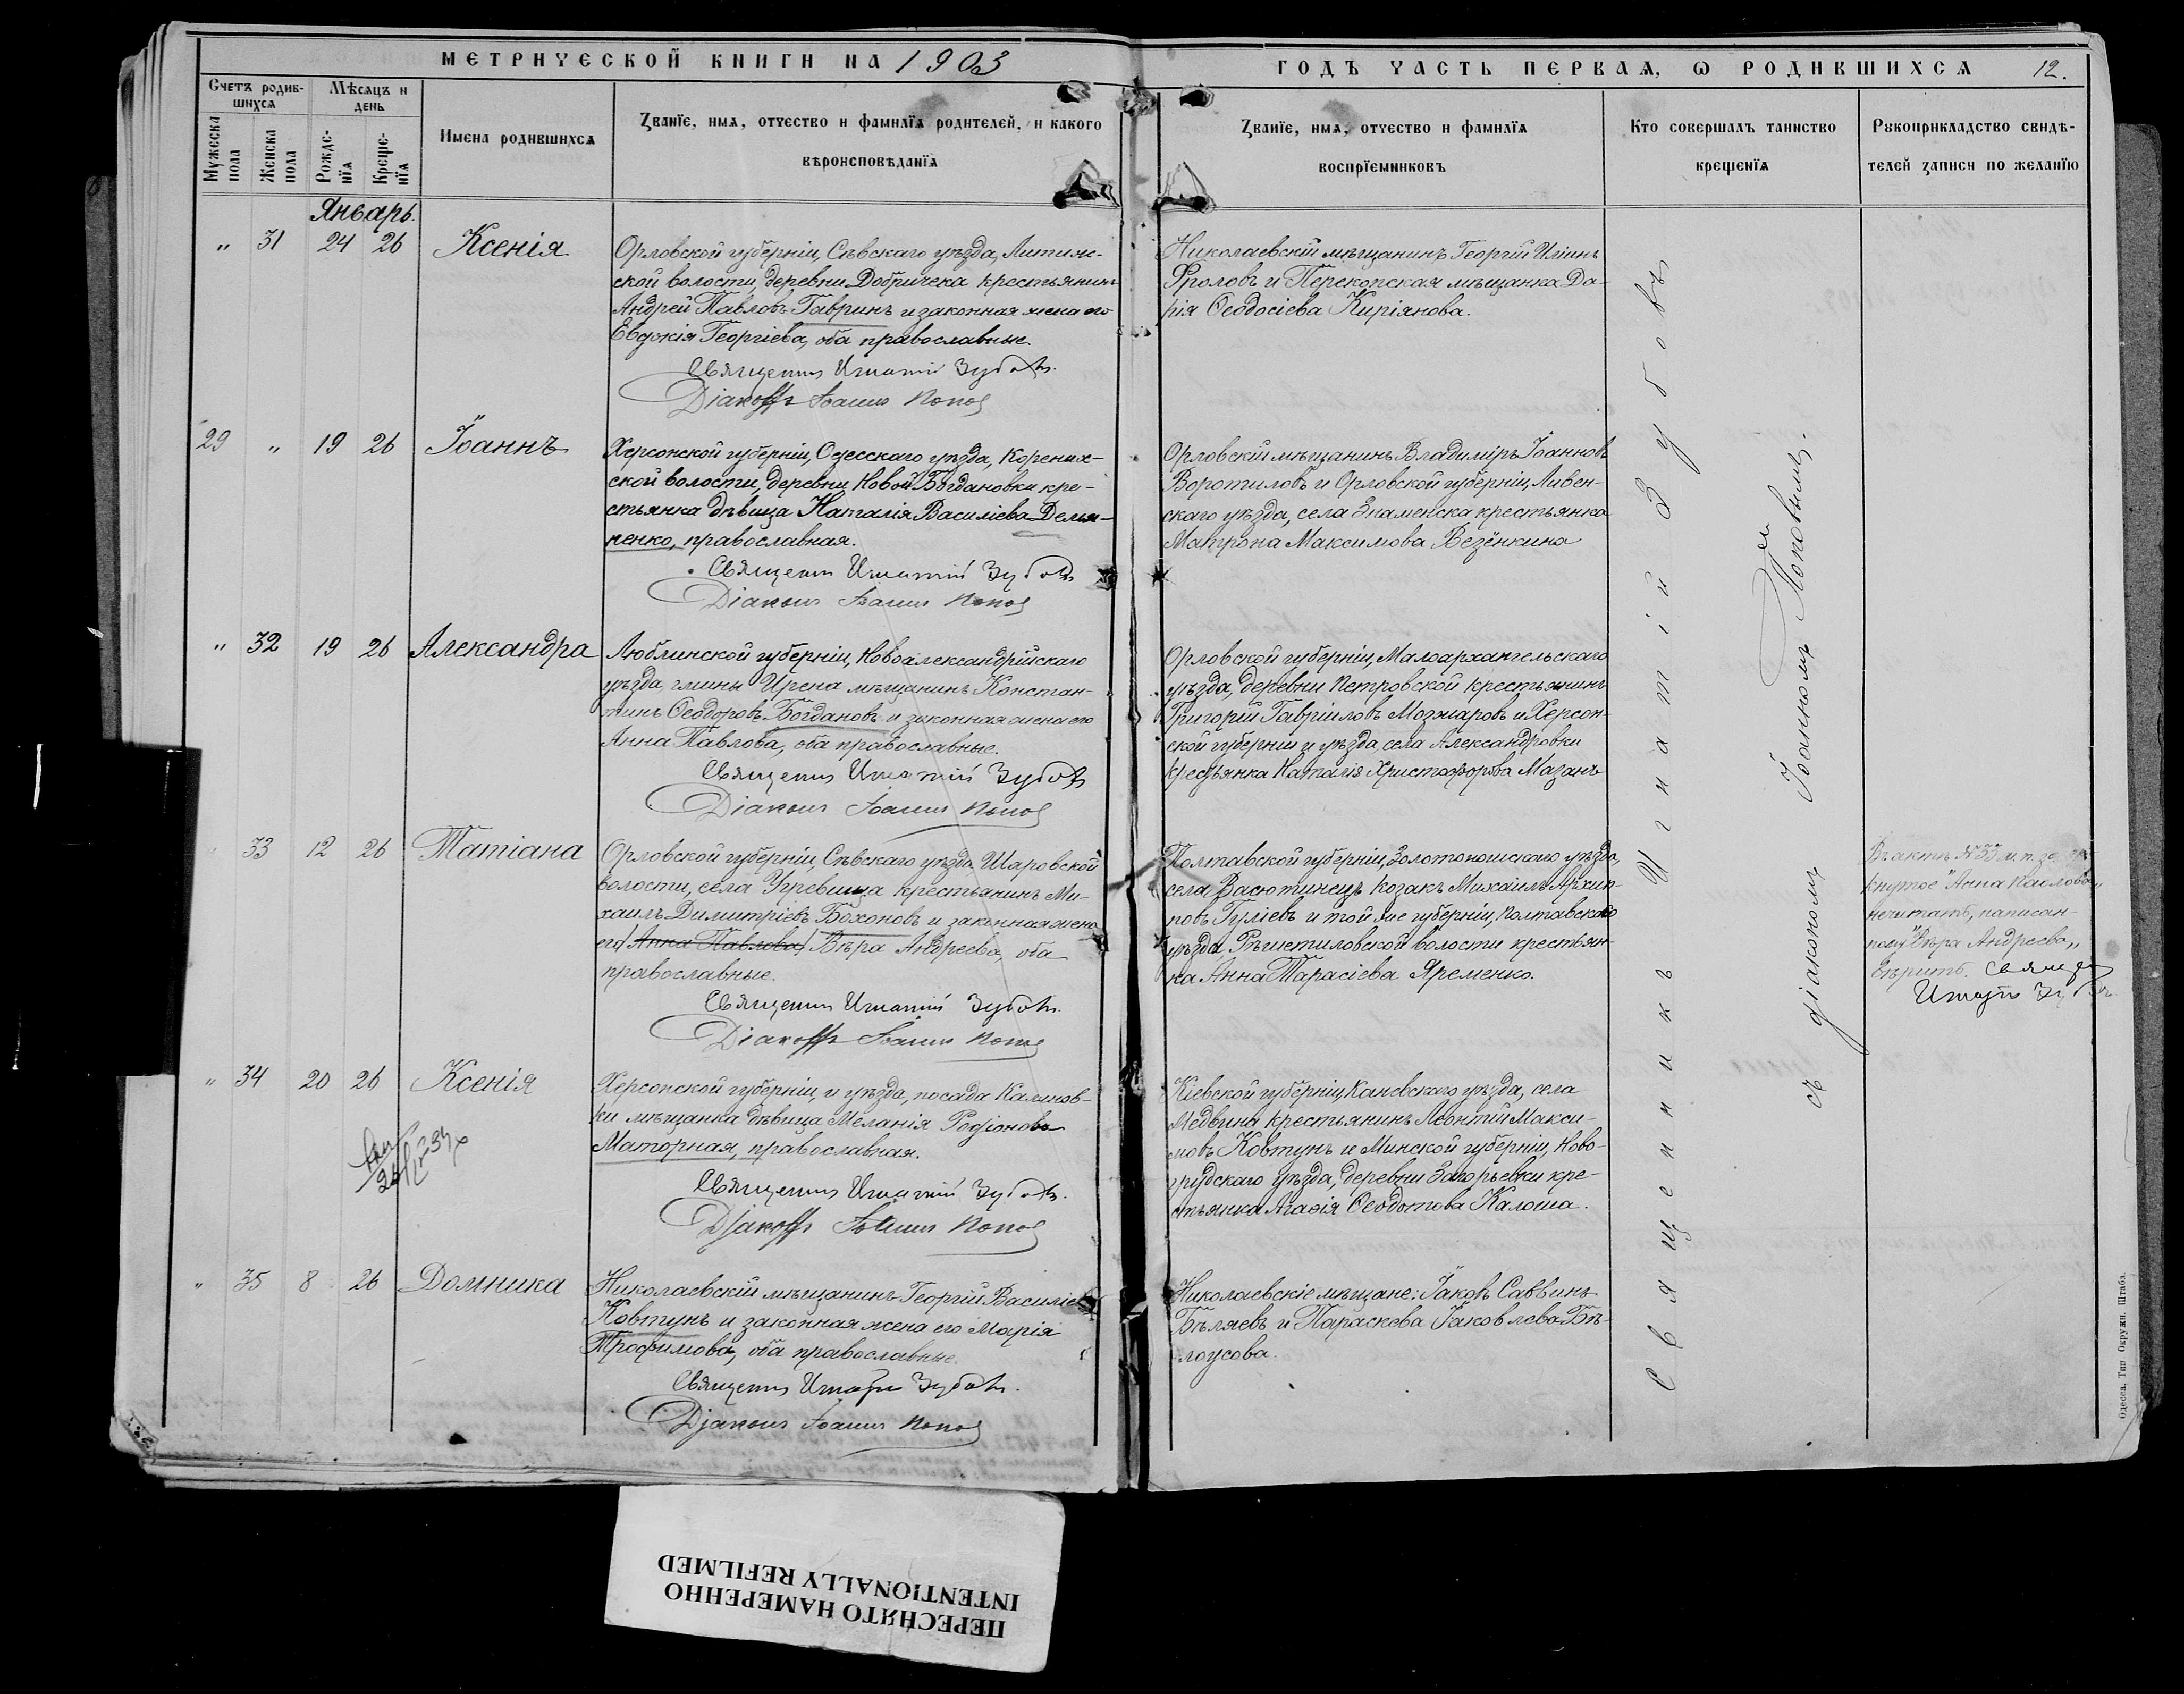 МЕТРИЧЕСКОЙ КНИГИ НА 1903
ГОДЪ ЧАСТЬ ПЕРВАѦ, Ѡ РОДИВШИХСѦ 12.
Счетъ родив-
шихсѧ
Мужеска
пола
Женска
пола
Мѣсѧцъ и
день
Рожде-
нїѧ
Креще-
нїѧ
Имена родившихсѧ
Званїе, имѧ, отчество и фамилїѧ родителей, и какого
вѣроисповѣданїѧ
Званїе, имѧ, отчество и фамилїѧ
воспрїемниковъ
Кто совершалъ таинство
крещенїѧ
Рукоприкладство свидѣ-
телей записи по желанїю
Январь.
" 31 24 26 Ксенія
Орловской губерніи, Сѣвскаго уѣзда, Литиж-
ской волости, деревни Добричека крестьянинъ
Андрей Павловъ Гавринъ и законная жена его
Евдокія Георгіева, оба православные.
Священникъ Игнатій Зубовъ.
Діаконъ Іоаннъ Попов
Николаевскій мѣщанинъ Георгій Илiинъ
Фроловъ и Перекопская мѣщанка Да-
рія Ѳеодосіева Киріянова.
29 " 19 26 Іоаннъ
Херсонской губерніи, Одесскаго уѣзда, Корених-
ской волости, деревни Новой Богдановки кре-
стьянка дѣвица Наталія Василіева Демя-
ненко, православная.
Священникъ Игнатій Зубовъ
Діаконъ Іоаннъ Попов
Орловскій мѣщанинъ Владиміръ Іоанновъ
Воротиловъ и Орловской губерніи, Ливен-
скаго уѣзда, села Знаменска крестьянка
Матрона Максимова Везёнкина
" 32 19 26 Александра
Люблинской губерніи, Новоалександрійскаго
уѣзда, гмины Ирена мѣщанинъ Констан-
тинъ Ѳеодоровъ Богдановъ и законная жена его
Анна Павлова, оба православные.
Священникъ Игнатій Зубовъ
Діаконъ Іоаннъ Попов
Орловской губерніи, Малоархангельскаго
уѣзда, деревни Петровской крестьянинъ
Григорій Гавріиловъ Мозжаровъ и Херсон-
ской губерніи и уѣзда, села Александровки
крестьянка Наталія Христофорова Мазанъ
33 12 26 Татіана
Орловской губерніи, Сѣвскаго уѣзда, Шаровской
волости, села Угревища крестьянинъ Ми-
хаилъ Димитріевъ Бохоновъ и законная жена
его (Анна Павлова) Вѣра Андреева, оба
православные.
Священникъ Игнатій Зубовъ.
Діаконъ Іоаннъ Попов
Полтавской губерніи, Золотоношскаго уѣзда,
села Васютинецъ козакъ Михаилъ Архип-
повъ Гуліевъ и той же губерніи, Полтавскаго
уѣзда, Рѣшетиловской волости крестьян-
ка Анна Тарасіева Яременко.
Въ актѣ № 33 ж. п. зачер-
кнутое "Анна Павлова"
не читать, написан-
ному "Вѣра Андреева"
вѣрить. Священ
Игнатій Зубовъ.
" 34 20 26 Ксенія
Херсонской губерніи и уѣзда, посада Калинов-
ки мѣщанка дѣвица Меланія Родіонова
Маторная, православная.
Священникъ Игнатій Зубовъ.
Діаконъ Іоаннъ Попов
Кіевской губерніи, Каневскаго уѣзда, села
Медвина крестьянинъ Леонтій Макси-
мовъ Ковтунъ и Минской губерніи, Ново-
грудскаго уѣзда, деревни Загорьевки кре-
стьянка Агаѳія Ѳеодотова Калоша.
" 35 8 26 Домника
Николаевскій мѣщанинъ Георгій Василіевъ
Ковтунъ и законная жена его Марія
Трофимова, оба православные.
Священникъ Игнатій Зубовъ.
Діаконъ Іоаннъ Попов
Николаевскіе мѣщане: Іаковъ Саввинъ
Бѣляевъ и Параскева Іаковлева Бѣ-
лоусова.
Священникъ Игнатій Зубовъ
съ діакономъ Іоанномъ Поповымъ.
Одесса, Тип. Окружн. Штаба.
ПЕРЕСНЯТО НАМЕРЕННО
INTENTIONALLY REFILMED